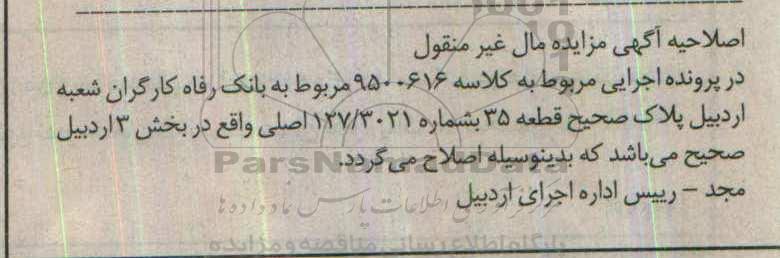 اصلاحیه آگهی مزایده مال غیر منقول
در پرونده اجرایی مربوط به کلاسه ۹۵۰۰۶۱۶ مربوط به بانک رفاه کارگران شعبه
اردبیل پلاک صحیح قطعه ۳۵ بشماره ۱۲۷/۳۰۲۱ اصلی واقع در بخش ۳ اردبیل
صحیح می‌باشد که بدینوسیله اصلاح می گردد.
ParsNamadData
مجد – رییس اداره اجرای اردبیل
پایگاه اطلاع رسانی مناقصه و مزایده